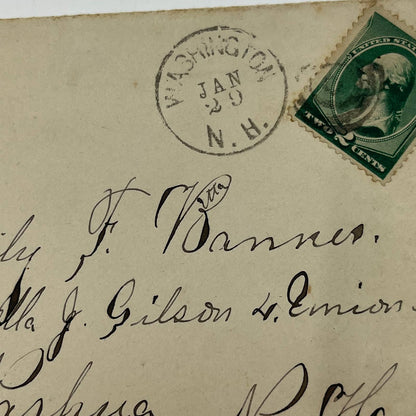 WASHINGTON
JAN
29
N. H.
UNITED STATES
TWO 2 CENTS
etta
ly F. Banner.
lla J. Gilson 4. Union
ashua N. H